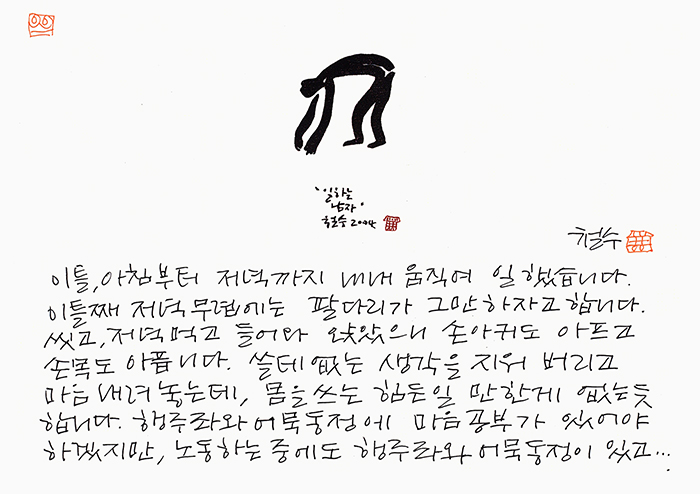 '일하는
남자'
철수 2004
철수
이틀, 아침부터 저녁까지 내내 움직여 일 했습니다.
이틀째 저녁 무렵에는 팔다리가 그만하자고 합니다.
씻고, 저녁 먹고 들어와 앉았으니 손아귀도 아프고
손목도 아픕니다. 쓸데 없는 생각을 지워 버리고
마음 내려 놓는데, 몸을 쓰는 힘든일 만한게 없는듯
합니다. 행주좌와어묵동정에 마음공부가 있어야
하겠지만, 노동하는 중에도 행주좌와어묵동정이 있고…